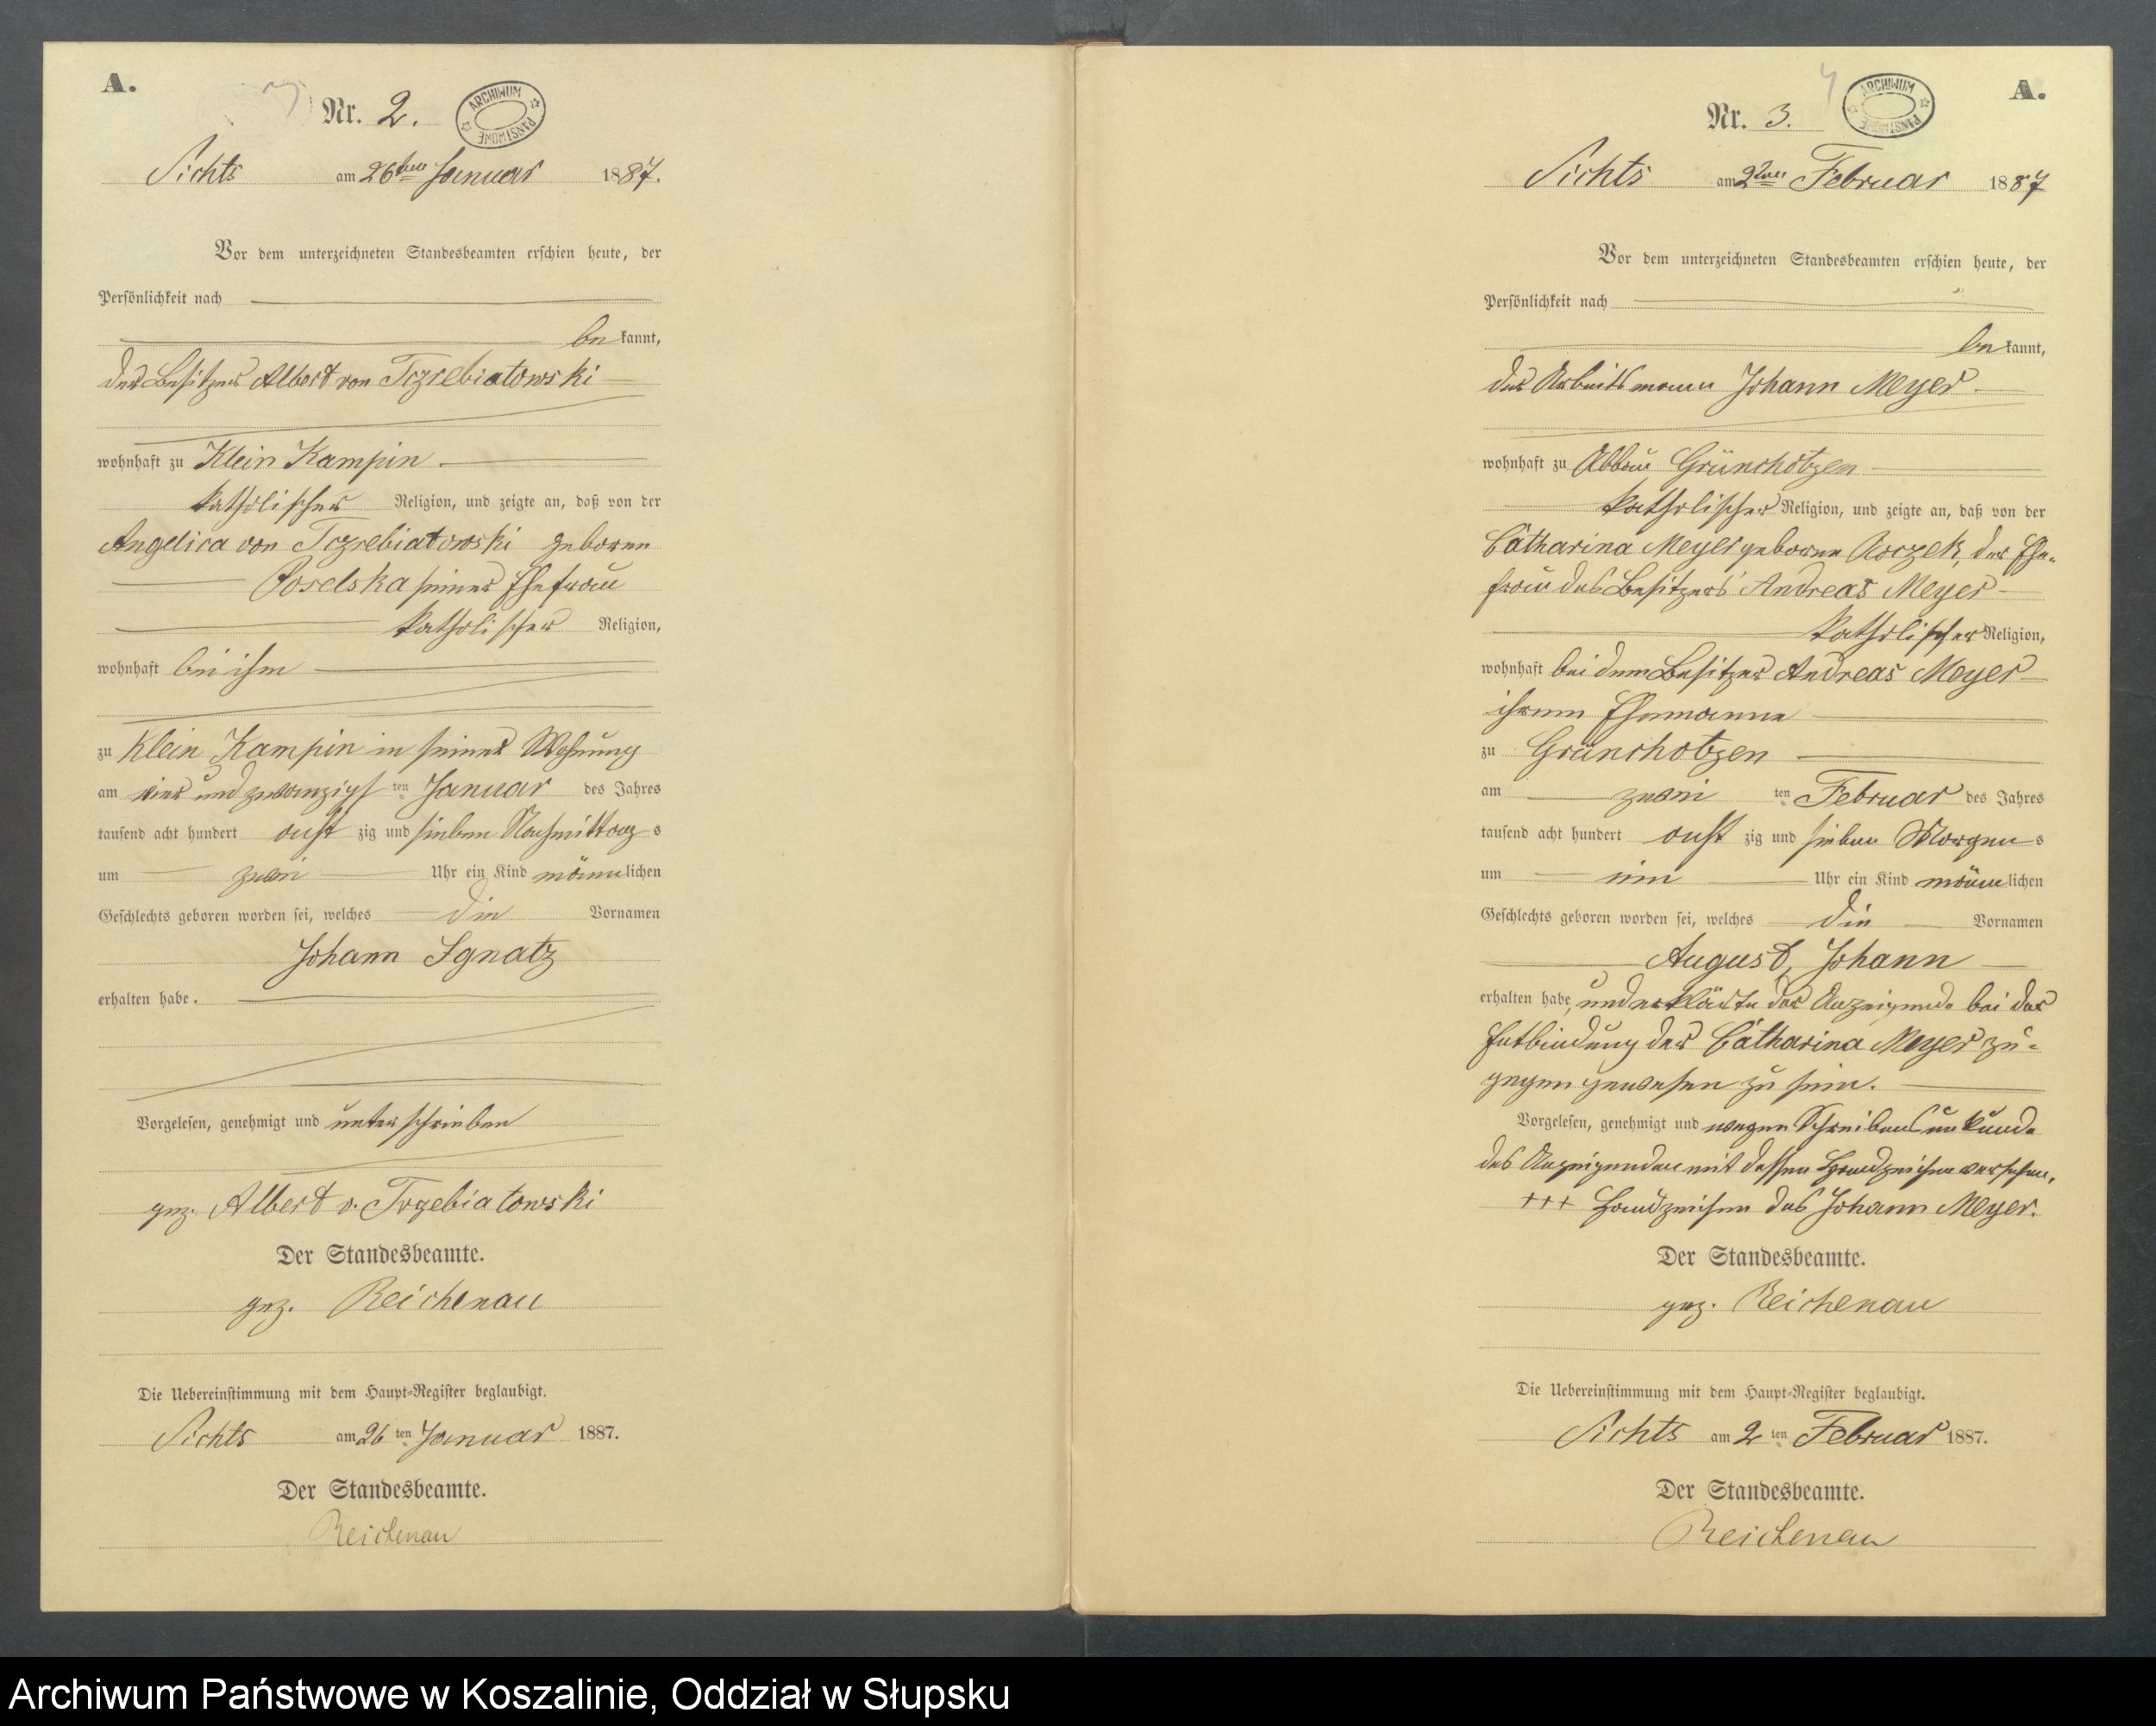 A.
7
Nr. 2.
ARCHIWUM PAŃSTWOWE
Sichts am 26ten Januar 1887.
Vor dem unterzeichneten Standesbeamten erschien heute, der
Persönlichkeit nach
bekannt,
der Besitzer Albert von Trzebiatowski
wohnhaft zu Klein Kampin
katholischer Religion, und zeigte an, daß von der
Angelica von Trzebiatowski geborene
Poselska seiner Ehefrau
katholischer Religion,
wohnhaft bei ihm
zu Klein Kampin in seiner Wohnung
am vier und zwanzigsten Januar des Jahres
tausend acht hundert acht zig und sieben Nachmittags
um zwei Uhr ein Kind männlichen
Geschlechts geboren worden sei, welches die Vornamen
Johann Ignatz
erhalten habe.
Vorgelesen, genehmigt und unterschrieben
gez. Albert v. Trzebiatowski
Der Standesbeamte.
gez. Reichenau
Die Uebereinstimmung mit dem Haupt-Register beglaubigt.
Sichts am 26ten Januar 1887.
Der Standesbeamte.
Reichenau
A.
Nr. 3.
ARCHIWUM PAŃSTWOWE
Sichts am 2ten Februar 1887
Vor dem unterzeichneten Standesbeamten erschien heute, der
Persönlichkeit nach
bekannt,
der Arbeitsmann Johann Meyer
wohnhaft zu Abbau Grünchotzen
katholischer Religion, und zeigte an, daß von der
Catharina Meyer geborene, der Ehe-
frau des Besitzers Andreas Meyer
katholischer Religion,
wohnhaft bei dem Besitzer Andreas Meyer
ihrem Ehemanne
zu Grünchotzen
am zwei ten Februar des Jahres
tausend acht hundert acht zig und sieben Morgens
um ein Uhr ein Kind männlichen
Geschlechts geboren worden sei, welches die Vornamen
August, Johann
erhalten habe, und erklärte der Anzeigende bei der
Entbindung der Catharina Meyer zu-
gegen gewesen zu sein.
Vorgelesen, genehmigt und wegen Schreibensunkunde
des Anzeigenden mit dessen Handzeichen versehen.
+++ Handzeichen des Johann Meyer.
Der Standesbeamte.
gez. Reichenau
Die Uebereinstimmung mit dem Haupt-Register beglaubigt.
Sichts am 2ten Februar 1887.
Der Standesbeamte.
Reichenau
Archiwum Państwowe w Koszalinie, Oddział w Słupsku